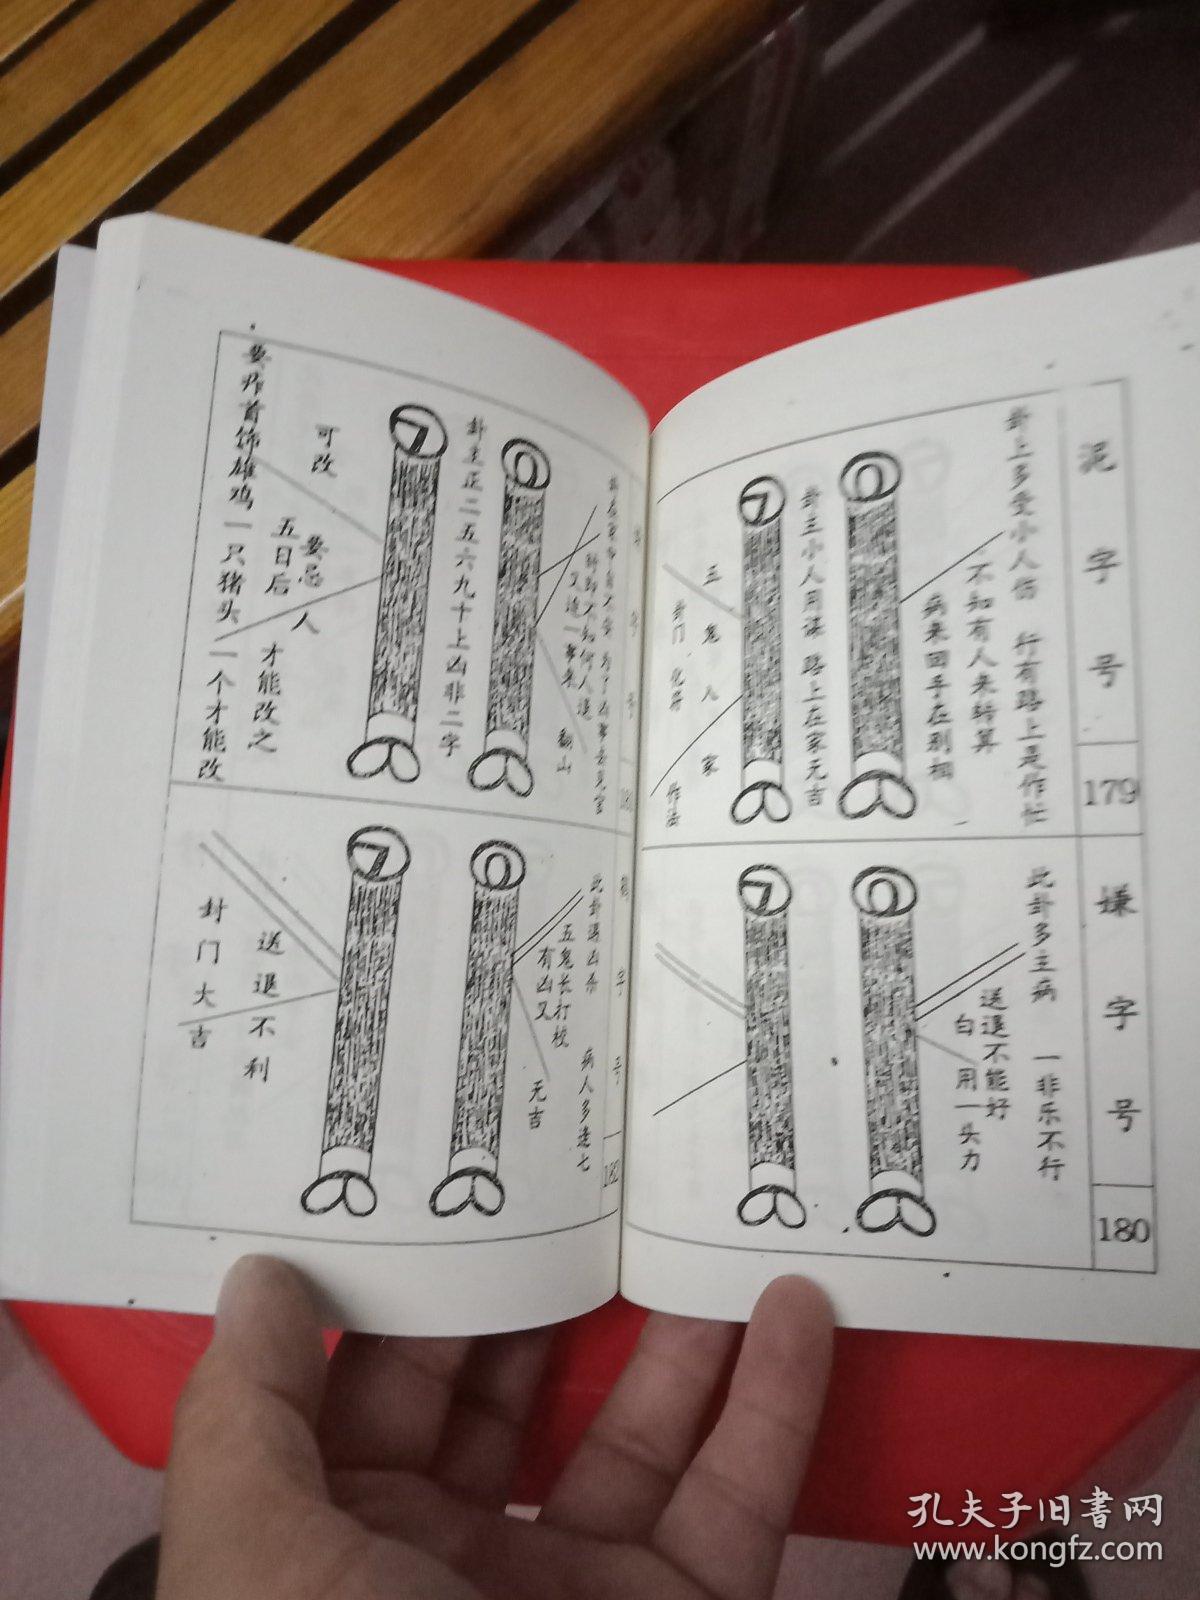 泥字号
179
卦上多受小人伤 行有路上是作忙
不知有人来转算
病来回手在别相
卦主小人用谋 路上在家无吉
三鬼人家
封门化符 作法
嫌字号
180
此卦多主病 一非乐不行
送退不能好
白用一头力
181
又连一事来
翻山
卦主正二五六九十上凶非二字
可改
要忌人
五日后
才能改之
要炸首饰雄鸡一只猪头一个才能改
字号
182
此卦遇凶杀 病人多连七
五鬼长打枝
有凶又
无吉
送退不利
封门大吉
孔夫子旧书网
www.kongfz.com